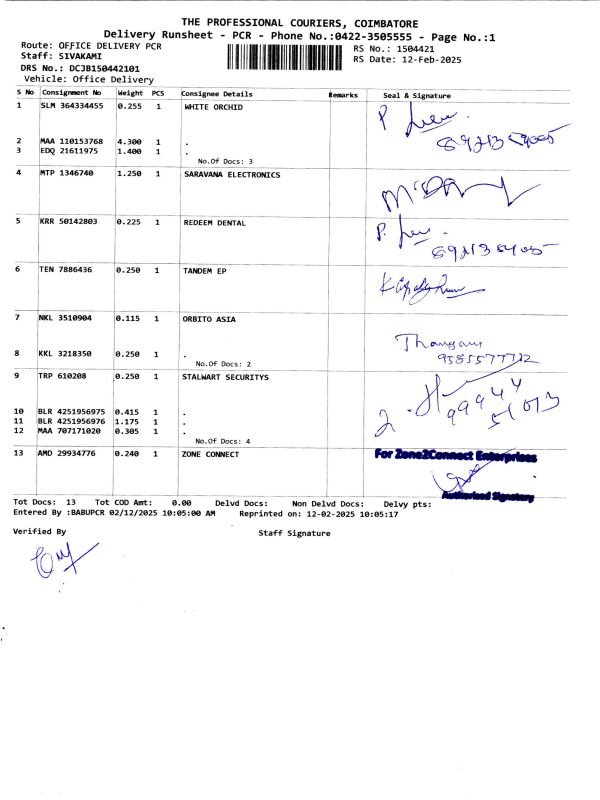 THE PROFESSIONAL COURIERS, COIMBATORE
Delivery Runsheet - PCR - Phone No.:0422-3505555 - Page No.:1
Route: OFFICE DELIVERY PCR
RS No.: 1504421
Staff: SIVAKAMI
RS Date: 12-Feb-2025
DRS No.: DCJB150442101
Vehicle: Office Delivery
S No Consignment No Weight PCS Consignee Details Remarks Seal & Signature
1 SLM 364334455 0.255 1 WHITE ORCHID
P
2 MAA 110153768 4.300 1 .
3 EDQ 21611975 1.400 1 .
No.Of Docs: 3
4 MTP 1346740 1.250 1 SARAVANA ELECTRONICS
5 KRR 50142803 0.225 1 REDEEM DENTAL
P.
6 TEN 7886436 0.250 1 TANDEM EP
7 NKL 3510904 0.115 1 ORBITO ASIA
8 KKL 3218350 0.250 1 .
9585577712
No.Of Docs: 2
9 TRP 610208 0.250 1 STALWART SECURITYS
99944
51073
10 BLR 4251956975 0.415 1 .
11 BLR 4251956976 1.175 1 .
12 MAA 707171020 0.305 1 .
No.Of Docs: 4
13 AMD 29934776 0.240 1 ZONE CONNECT
For Zone2Connect Enterprises
Authorised Signatory
Tot Docs: 13 Tot COD Amt: 0.00 Delvd Docs: Non Delvd Docs: Delvy pts:
Entered By :BABUPCR 02/12/2025 10:05:00 AM Reprinted on: 12-02-2025 10:05:17
Verified By Staff Signature